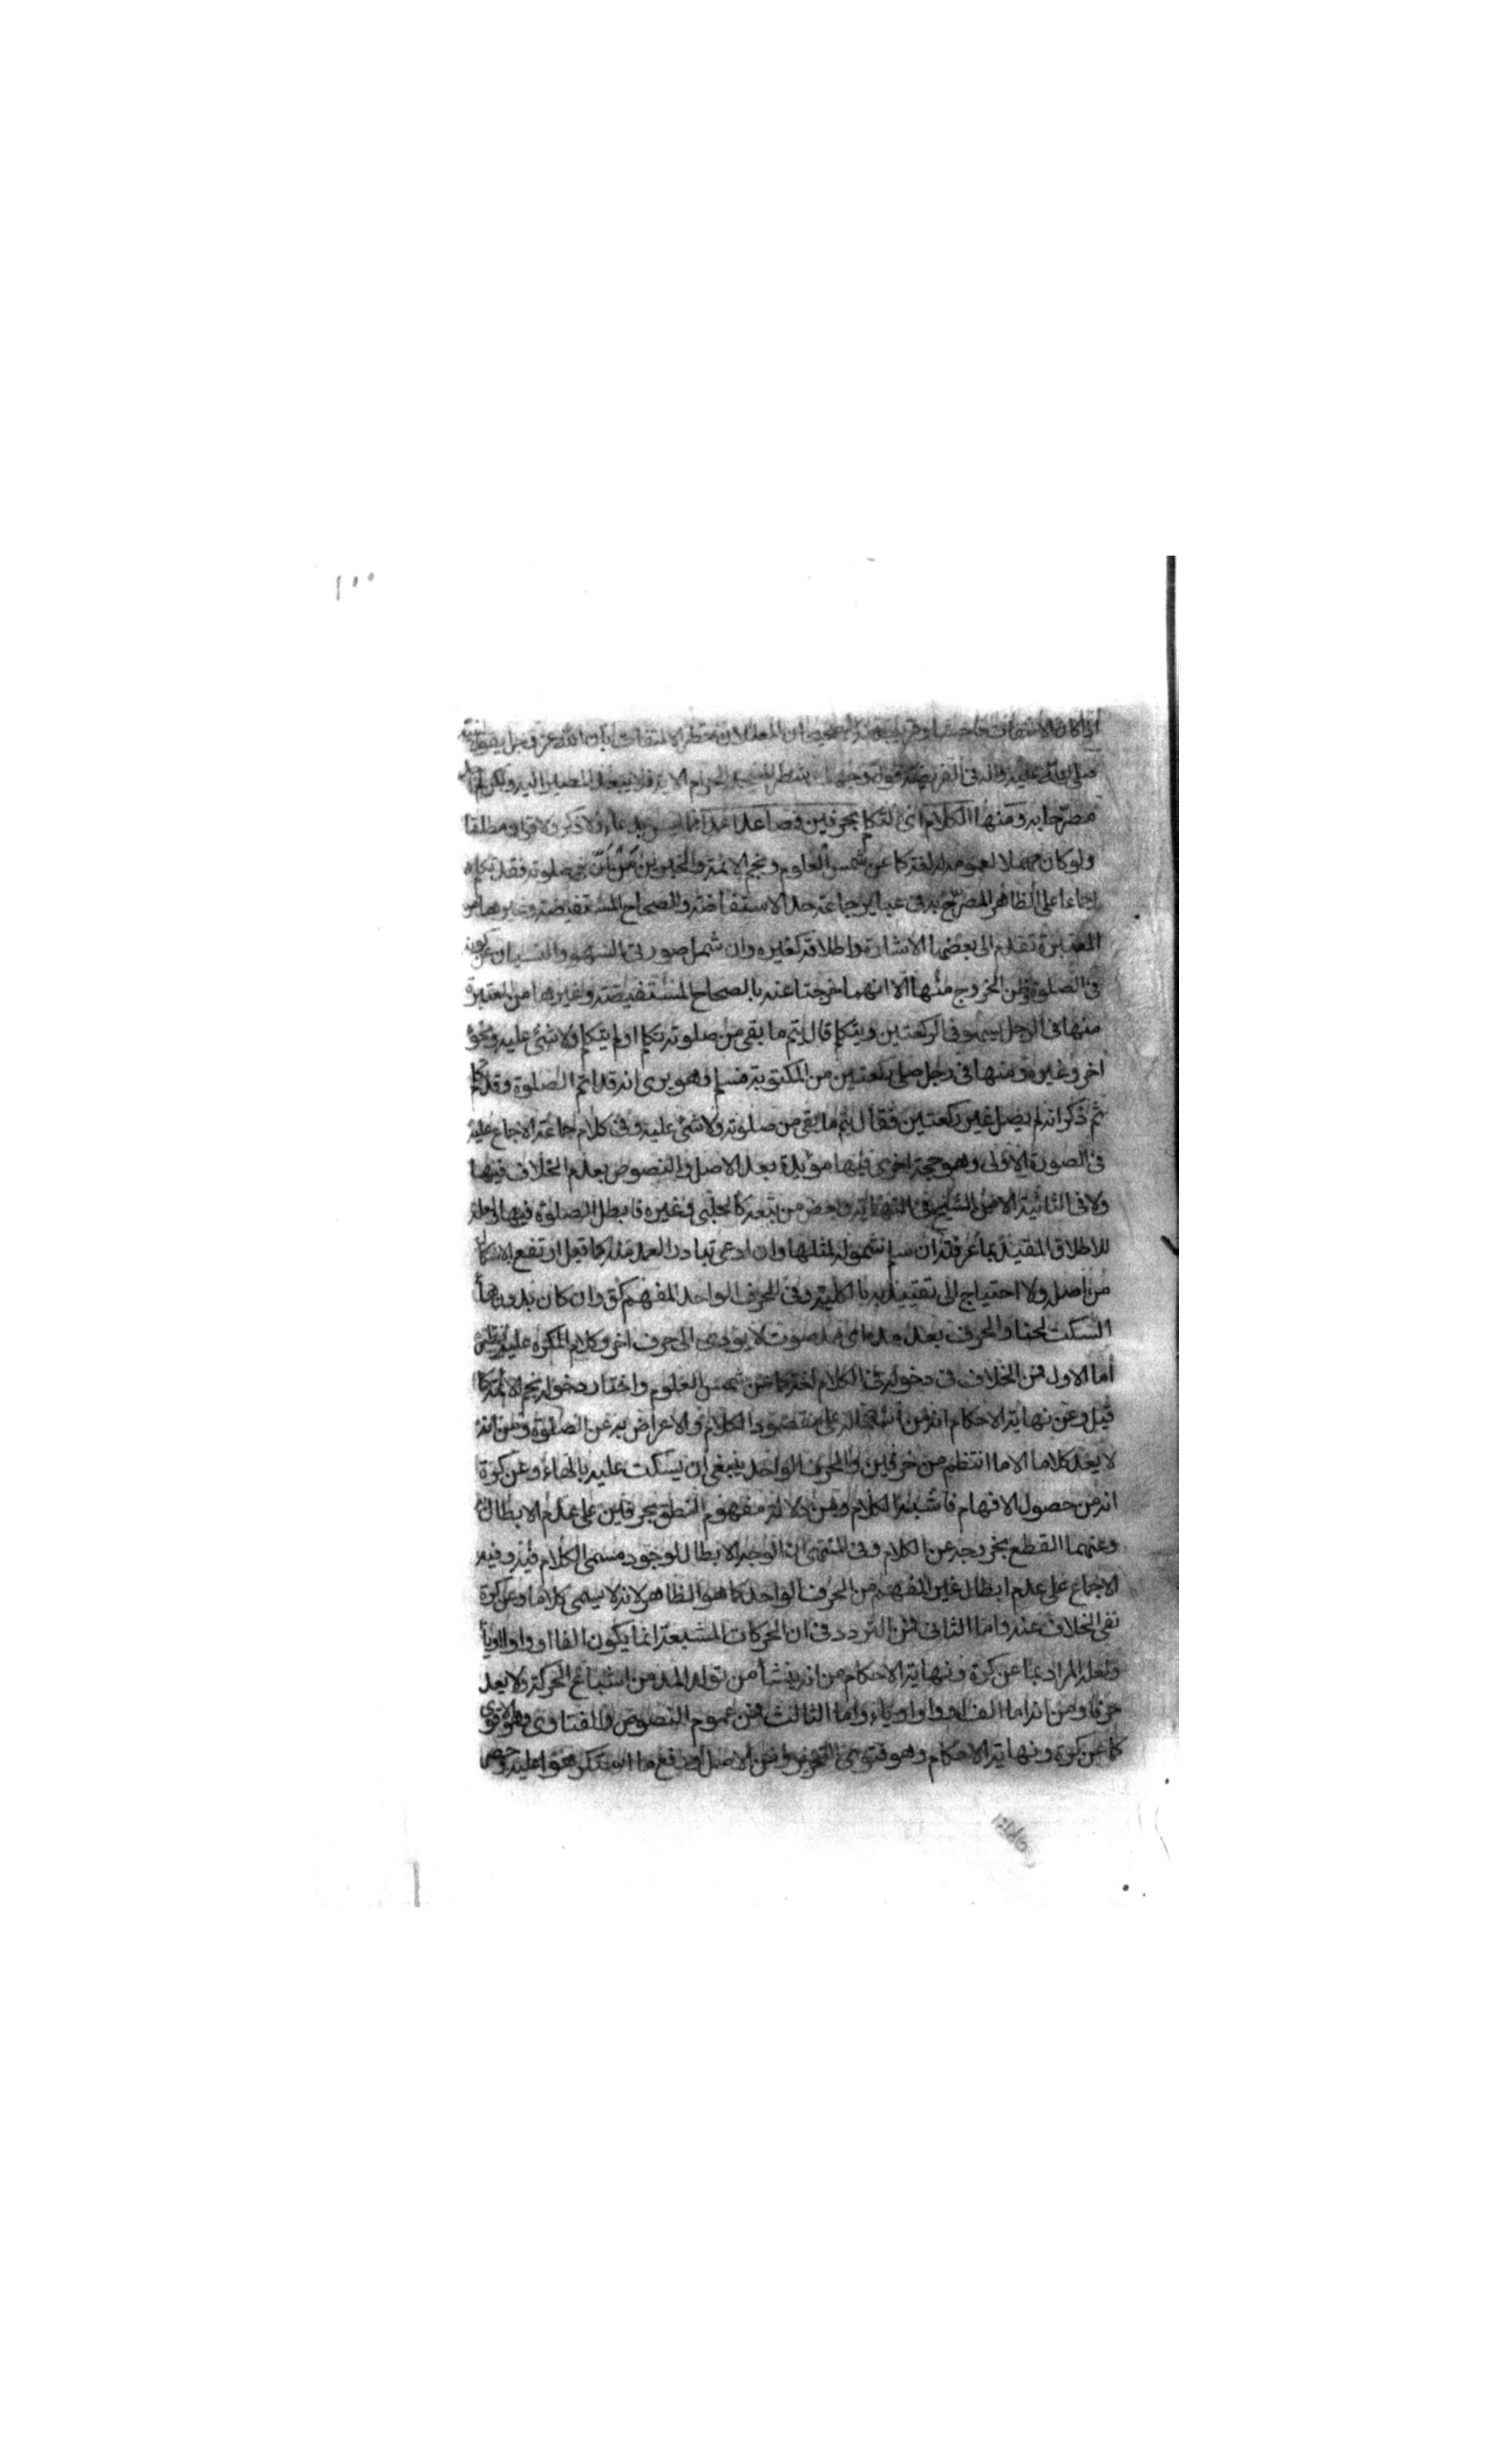 ١٠٠
اذا كان الالتفات فاحشا و الصحيح ان المعلل لان حظر الالتفات بان الله عز وجل يقول لنبيه
صلى الله عليه واله في الفريضة فول وجهك شطر المسجد الحرام الاية فلا يبعد المصير اليه
مصرحا به ومنها الكلام اى التكلم بحرفين فصاعدا عمدا مما ليس بدعاء ولا ذكر ولا قران مطلقا
ولو كان مهملا لعمومه له لغة كما عن شمس العلوم ونجم الائمة والخبرين من ان في صلوته فقد تكلم
اجماعا على الظاهر المصرح به في عباير جماعة حد الاستفاضة والصحاح المستفيضة وغيرها من
المعتبرة تقدم الى بعضها الاشارة واطلاقه كغيره وان شمل صورتى السهو والنسيان عن كونه
في الصلوة وظن الخروج منها الا انهما خرجتا عنه بالصحاح المستفيضة وغيرها من المعتبرة
منها في الرجل يسهو في الركعتين ويتكلم قال يتم ما بقى من صلوته تكلم او لم يتكلم ولا شئ عليه ونحوه
اخر وغيره ومنها في رجل صلى ركعتين من المكتوبة فسلم وهو يرى انه قد اتم الصلوة وتكلم
ثم ذكر انه لم يصل غير ركعتين فقال يتم ما بقى من صلوته ولا شئ عليه وفى كلام جماعة الاجماع عليه
في الصورة الاولى وهو حجة اخرى فيها مؤيدة بعد الاصل والنصوص بعدم الخلاف فيها
ولا في الثانية الا من الشيخ في النهاية وبعض من تبعه كالحلبى في غيره فابطل الصلوة فيها
للاطلاق المقيد بما عرفته ان سلم شموله لمثلها وان ادعى تبادر العمد منه كما قيل ارتفع الاشكال
من اصله ولا احتياج الى تقييده به بالكلية وفى الحرف الواحد المفهم كق وان كان بدون هاء
السكت لحنا والحرف بعده مدة اى مد صوت لا يؤدى الى حرف اخر وكلام المكره عليه نظر
اما الاول فمن الخلاف في دخوله في الكلام لغة كما عن شمس العلوم واختار دخوله نجم الائمة كما
قيل وعن نهاية الاحكام انه من اشتماله على مقصود الكلام والاعراض به عن الصلوة ومن انه
لا يعد كلاما الا ما انتظم من حرفين والحرف الواحد ينبغى ان يسكت عليه بالهاء وعن كرة
انه من حصول الافهام فاشبه الكلام ومن دلالة مفهوم النطق بحرفين على عدم الابطال به
وعنهما القطع بخروجه عن الكلام وفى المنتهى ان الوجه الابطال لوجود مسمى الكلام فيه وفيه
الاجماع على عدم ابطال غير المفهم من الحرف الواحد كما هو الظاهر لانه لا يسمى كلاما وعن كرة
نفى الخلاف عنه واما الثانى فمن التردد في ان الحركات المشبعة انما يكون الفا او واوا او ياء
ولعله المراد بما عن كرة ونهاية الاحكام من انه ينشأ من تولد المد من اشباع الحركة ولا يعد
حرفا ومن انه اما الف او واو او ياء واما الثالث فمن عموم النصوص والفتاوى وهو الاقوى
كما عن كرة ونهاية الاحكام وهو فتوى التحرير ومن الاصل ورفع ما استكرهوا عليه